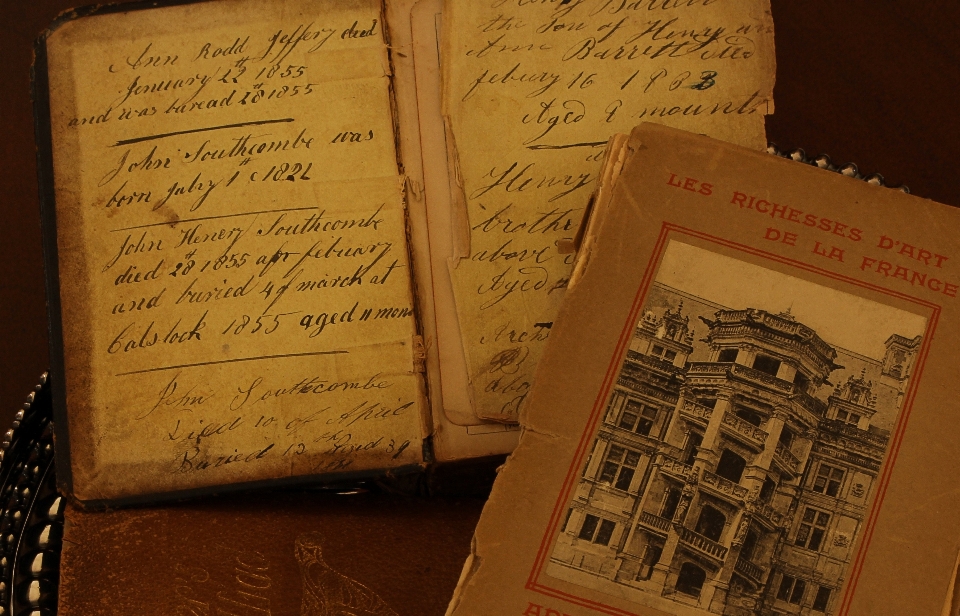 Ann Rodd Jeffery died
Jenuary 22th 1855
and was buread 28 1855
John Southcombe was
born July 1st 1821
John Henery Southcombe
died 28 1855 of febuary
and buried 4 of march at
Calstock 1855 aged 11 mon
John Southcombe
Died 10 of April
Buried 13
the Son of Henry an
Ann Barrett died
febury 16 1883
Aged 9 mounth
Henry
brothr
above
Aged
abo
LES RICHESSES D'ART
DE LA FRANCE